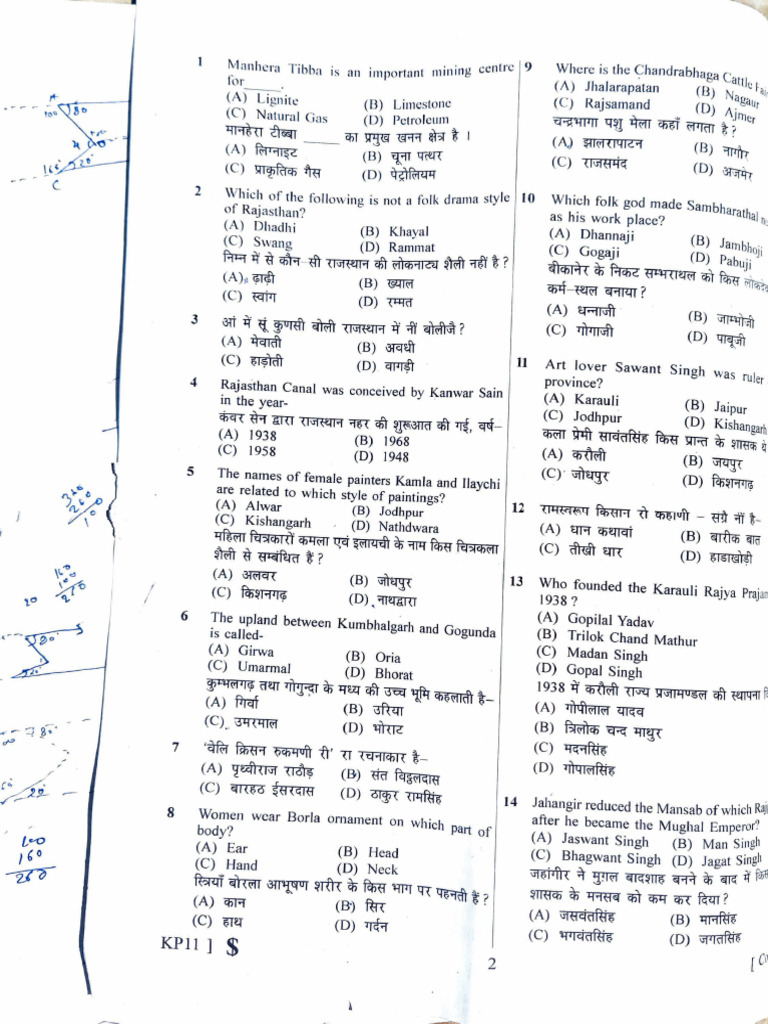 1 Manhera Tibba is an important mining centre
for_____.
(A) Lignite (B) Limestone
(C) Natural Gas (D) Petroleum
मानहेरा टीब्बा _____ का प्रमुख खनन क्षेत्र है ।
(A) लिग्नाइट (B) चूना पत्थर
(C) प्राकृतिक गैस (D) पेट्रोलियम
2 Which of the following is not a folk drama style
of Rajasthan?
(A) Dhadhi (B) Khayal
(C) Swang (D) Rammat
निम्न में से कौन-सी राजस्थान की लोकनाट्य शैली नहीं है ?
(A) ढ़ाढ़ी (B) ख्याल
(C) स्वांग (D) रम्मत
3 आं में सूं कुणसी बोली राजस्थान में नीं बोलीजै ?
(A) मेवाती (B) अवधी
(C) हाड़ोती (D) वागड़ी
4 Rajasthan Canal was conceived by Kanwar Sain
in the year-
कंवर सेन द्वारा राजस्थान नहर की शुरूआत की गई, वर्ष-
(A) 1938 (B) 1968
(C) 1958 (D) 1948
5 The names of female painters Kamla and Ilaychi
are related to which style of paintings?
(A) Alwar (B) Jodhpur
(C) Kishangarh (D) Nathdwara
महिला चित्रकारों कमला एवं इलायची के नाम किस चित्रकला
शैली से सम्बंधित हैं ?
(A) अलवर (B) जोधपुर
(C) किशनगढ़ (D) नाथद्वारा
6 The upland between Kumbhalgarh and Gogunda
is called-
(A) Girwa (B) Oria
(C) Umarmal (D) Bhorat
कुम्भलगढ़ तथा गोगुन्दा के मध्य की उच्च भूमि कहलाती है-
(A) गिर्वा (B) उरिया
(C) उमरमाल (D) भोराट
7 'वेलि क्रिसन रुकमणी री' रा रचनाकार है-
(A) पृथ्वीराज राठौड़ (B) संत विट्ठलदास
(C) बारहठ ईसरदास (D) ठाकुर रामसिंह
8 Women wear Borla ornament on which part of
body?
(A) Ear (B) Head
(C) Hand (D) Neck
स्त्रियाँ बोरला आभूषण शरीर के किस भाग पर पहनती हैं ?
(A) कान (B) सिर
(C) हाथ (D) गर्दन
KP11 ] $
2
9 Where is the Chandrabhaga Cattle Fair
(A) Jhalarapatan (B) Nagaur
(C) Rajsamand (D) Ajmer
चन्द्रभागा पशु मेला कहाँ लगता है ?
(A) झालरापाटन (B) नागौर
(C) राजसमंद (D) अजमेर
10 Which folk god made Sambharathal
as his work place?
(A) Dhannaji (B) Jambhoji
(C) Gogaji (D) Pabuji
बीकानेर के निकट सम्भराथल को किस
कर्म-स्थल बनाया ?
(A) धन्नाजी (B) जाम्भोजी
(C) गोगाजी (D) पाबूजी
11 Art lover Sawant Singh was ruler
province?
(A) Karauli (B) Jaipur
(C) Jodhpur (D) Kishangarh
कला प्रेमी सावंतसिंह किस प्रान्त के शासक थे
(A) करौली (B) जयपुर
(C) जोधपुर (D) किशनगढ़
12 रामस्वरूप किसान रो कहाणी - सग्रै नीं है-
(A) धान कथावां (B) बारीक बात
(C) तीखी धार (D) हाडाखोड़ी
13 Who founded the Karauli Rajya
1938 ?
(A) Gopilal Yadav
(B) Trilok Chand Mathur
(C) Madan Singh
(D) Gopal Singh
1938 में करौली राज्य प्रजामण्डल की स्थापना
(A) गोपीलाल यादव
(B) त्रिलोक चन्द माथुर
(C) मदनसिंह
(D) गोपालसिंह
14 Jahangir reduced the Mansab of which
after he became the Mughal Emperor?
(A) Jaswant Singh (B) Man Singh
(C) Bhagwant Singh (D) Jagat Singh
जहांगीर ने मुगल बादशाह बनने के बाद में
शासक के मनसब को कम कर दिया ?
(A) जसवंतसिंह (B) मानसिंह
(C) भगवंतसिंह (D) जगतसिंह